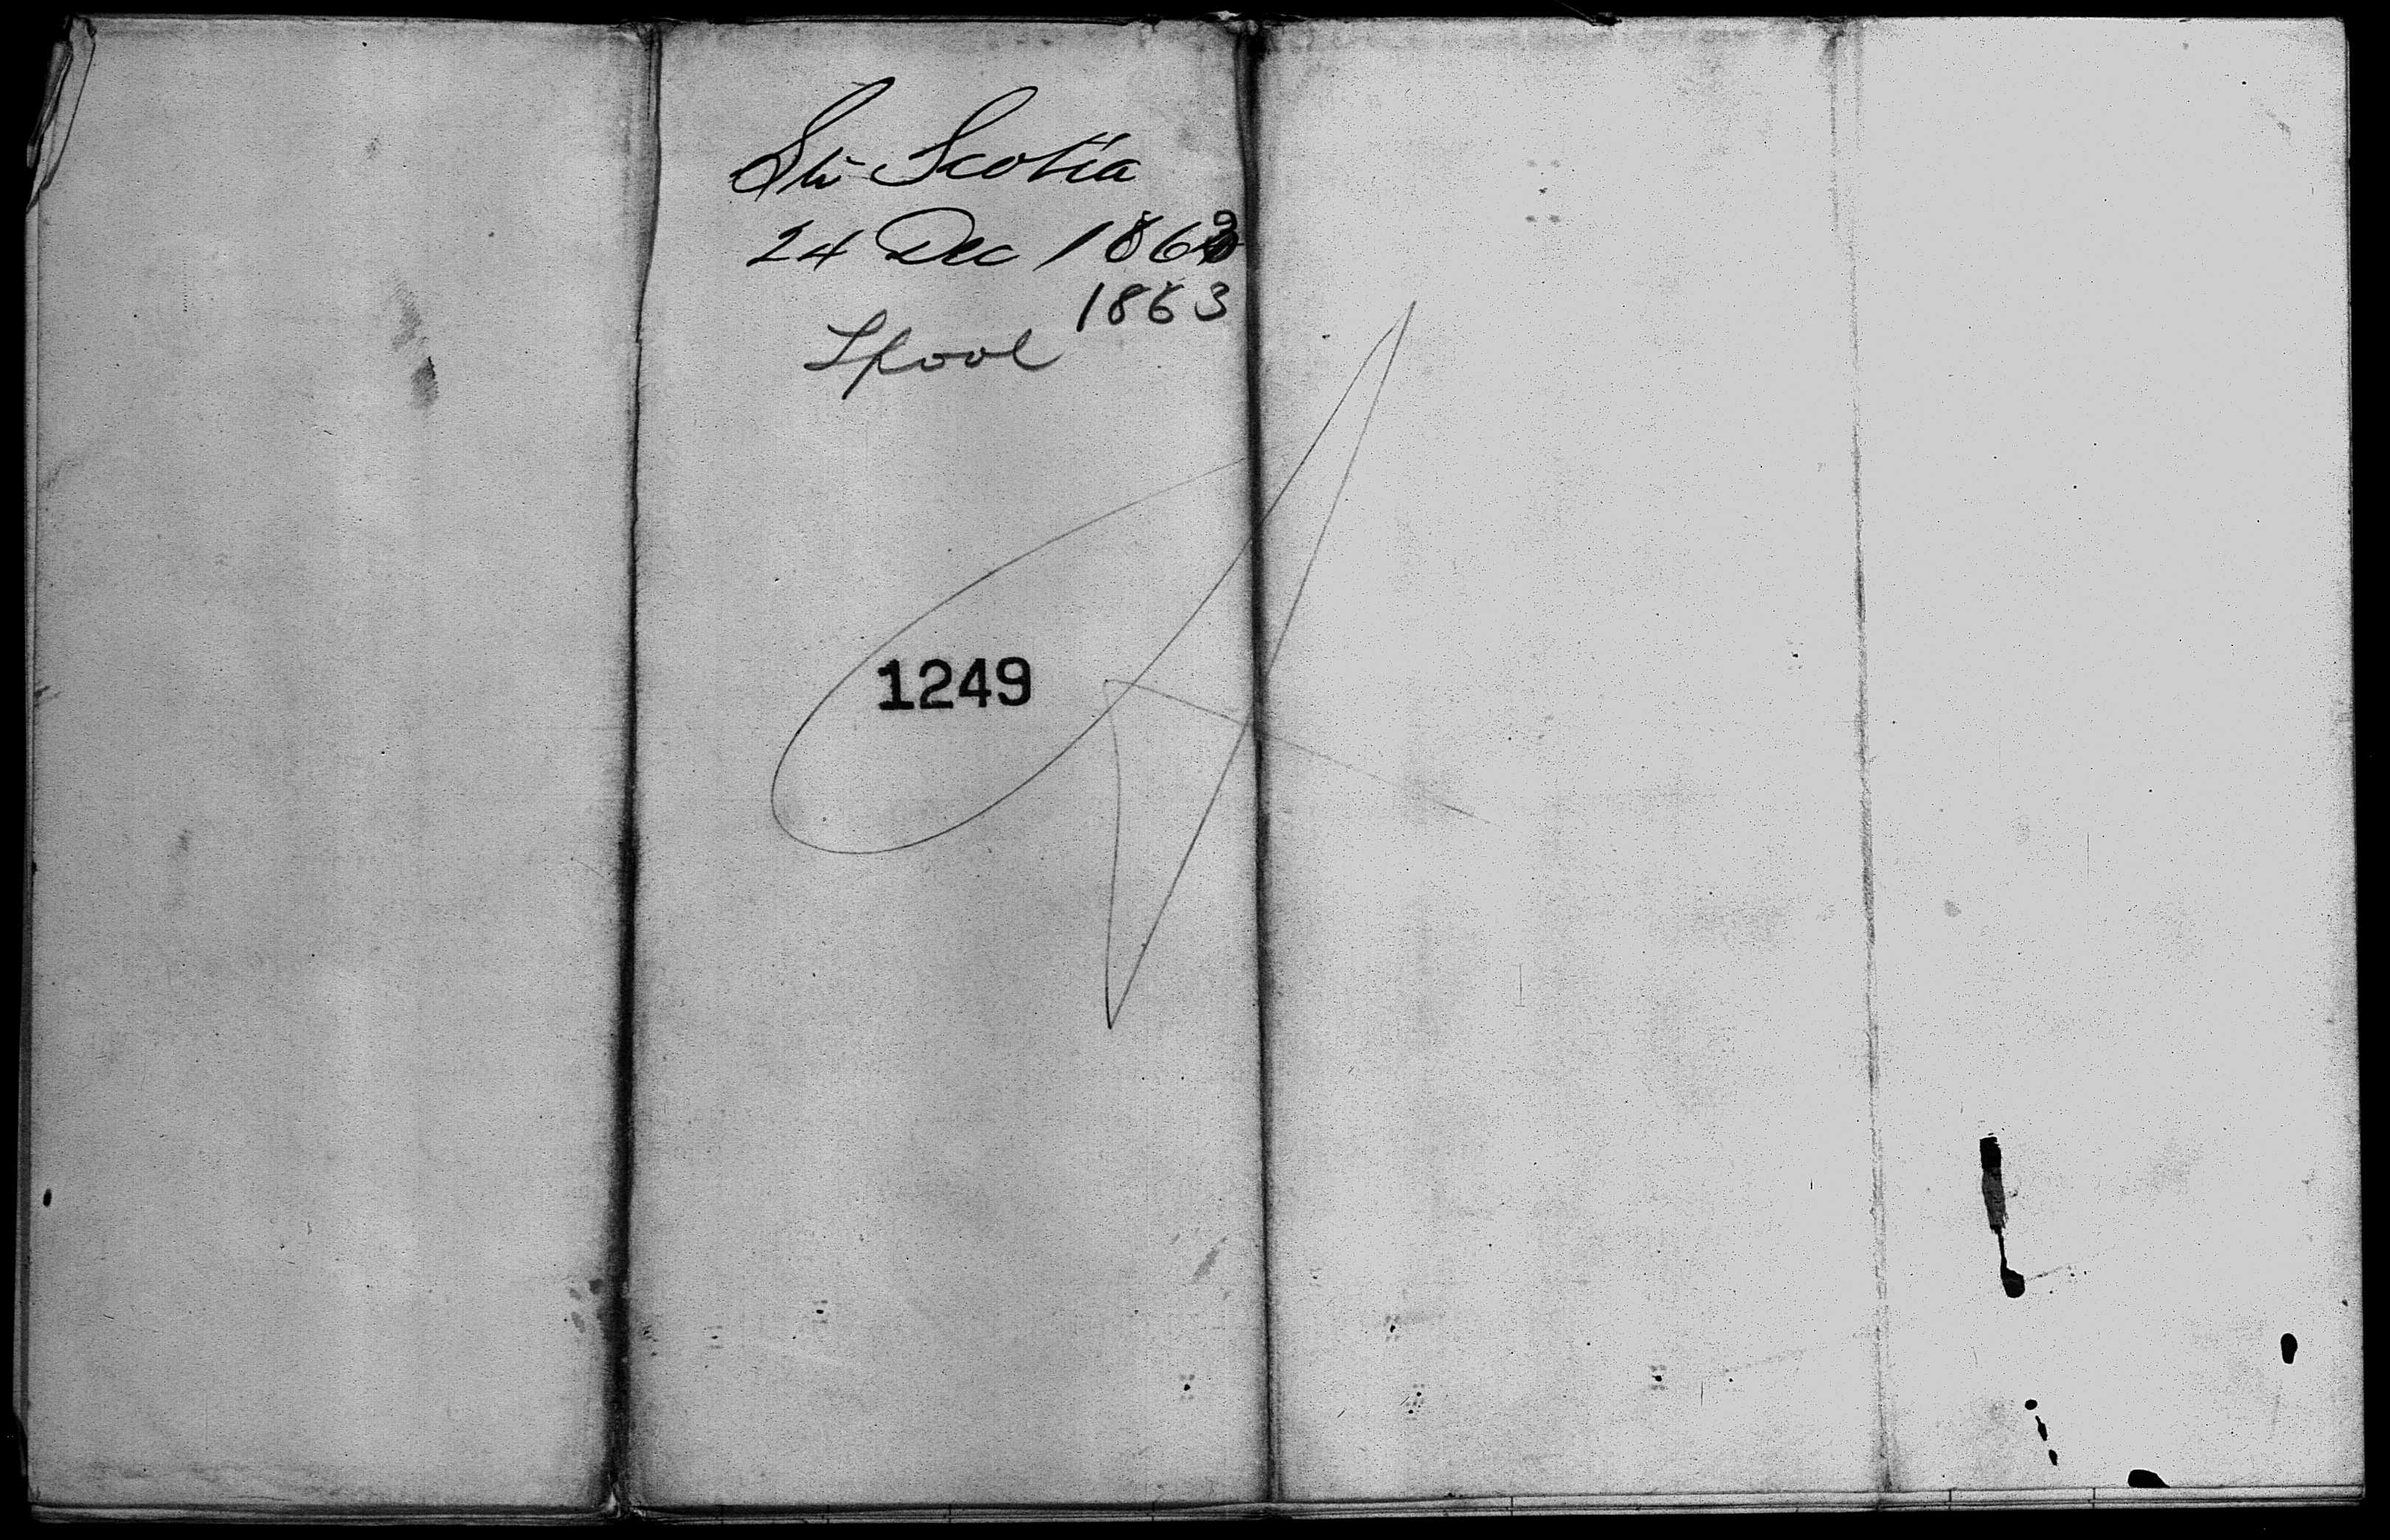 Str Scotia
24 Dec 1863
1863
Lpool
1249